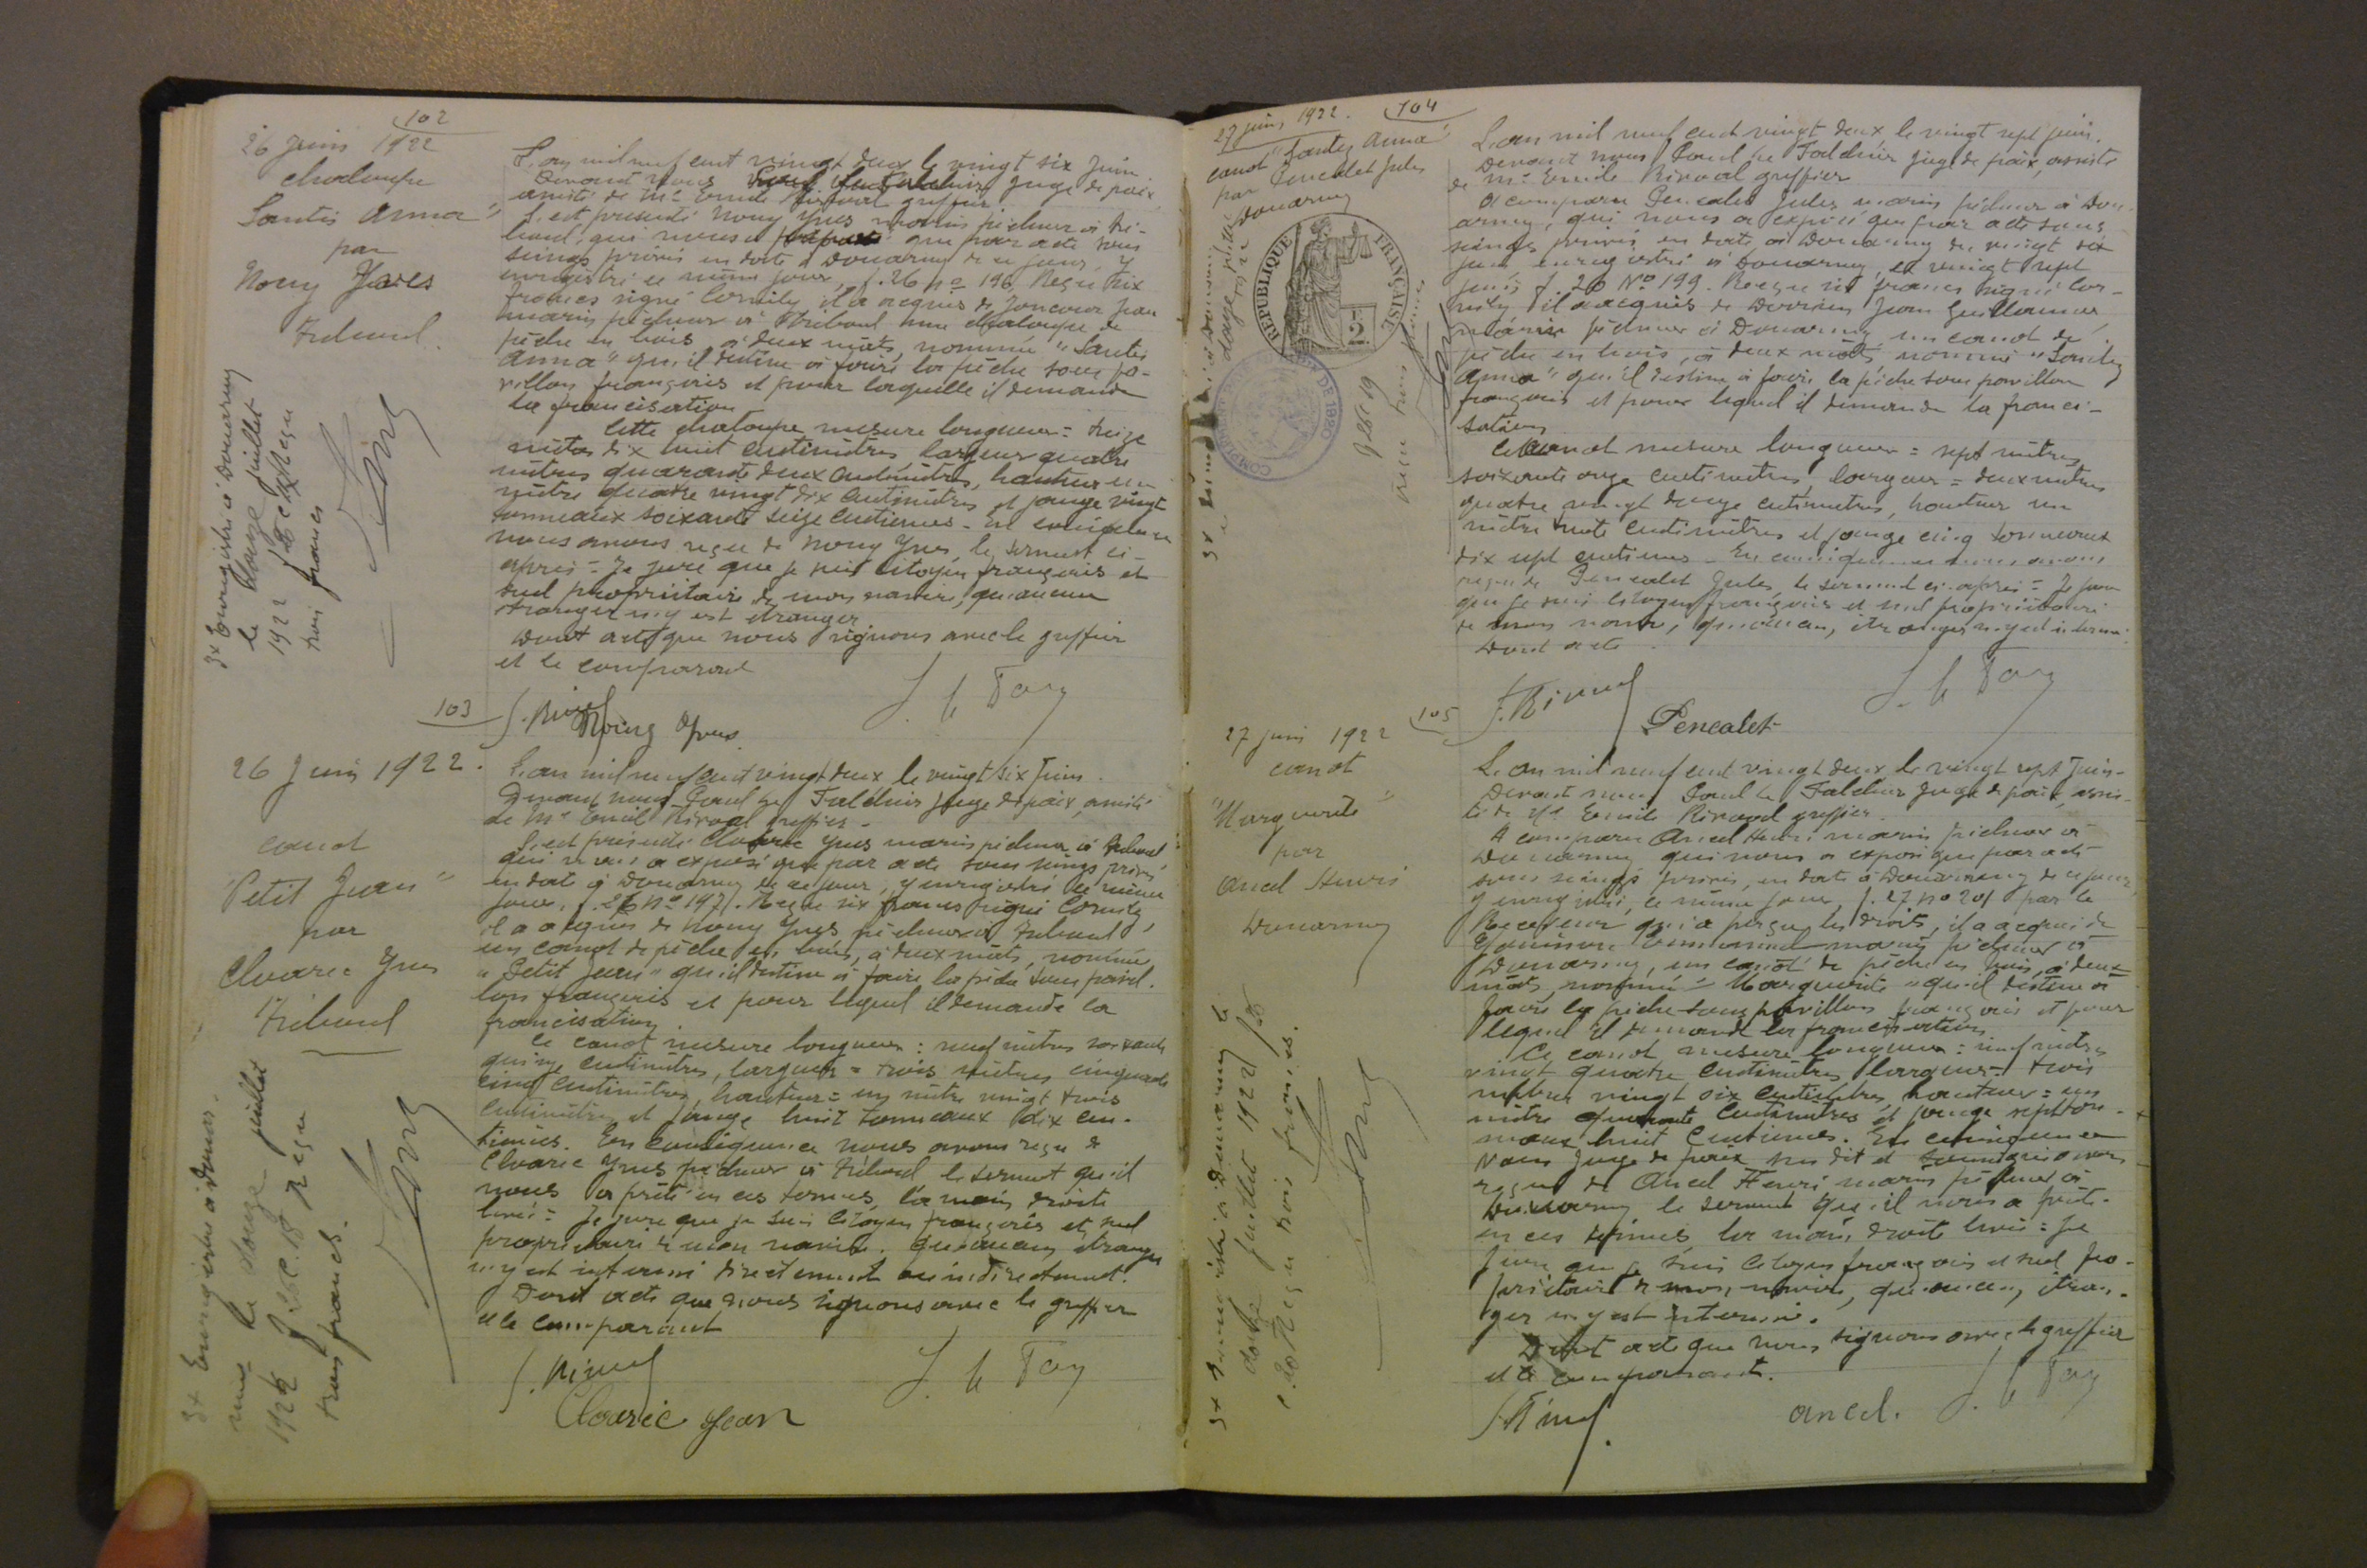 102
26 Juin 1922
chaloupe
Santez Anna"
par
Nouy Yves
Tréboul.
L'an mil neuf cent vingt deux le vingt six Juin
Devant nous Juge de paix,
assisté de Me Emile Rivoal greffier
S'est présenté Nouy Yves marin pêcheur à Tré-
boul, qui nous a exposé que par acte sous
seings privés en date à Douarnenez de ce jour, y
enregistré le même jour, f. 26 no 196 Reçu six
francs signé Cornily il a acquis de Joncour Jean
marin pêcheur à Tréboul une chaloupe de
pêche en bois à deux mâts, nommée "Santez
Anna" qu'il destine à faire la pêche sous pa-
villon français et pour laquelle il demande
la francisation
Cette chaloupe mesure longueur = treize
mètres dix huit centimètres largeur quatre
mètres quarante deux centimètres, hauteur un
mètre quatre vingt dix centimètres et jauge vingt
tonneaux soixante seize centièmes - En conséquence
nous avons reçu de Nouy Yves, le serment ci-
après = Je jure que je suis citoyen français et
seul propriétaire de mon navire, qu'aucun
étranger n'y est étranger
Dont acte que nous signons avec le greffier
et le comparant
Enregistré à Douarnenez
le douze juillet
1922 Reçu
trois francs
103
26 Juin 1922.
canot
"Petit Jean"
par
Cloarec Yves
Tréboul
L'an mil neuf cent vingt deux le vingt six Juin.
Devant nous Paul Le Faldénir Juge de paix, assisté
de Me Emile Rivoal greffier -
S'est présenté Cloarec Yves marin pêcheur à Tréboul
qui nous a exposé que par acte sous seings privés
en date à Douarnenez de ce jour, y enregistré le même
jour, f. 26 no 197. Reçu six francs signé Cornily,
il a acquis de Nouy Yves pêcheur à Tréboul
un canot de pêche en bois, à deux mâts, nommé
"Petit Jean" qu'il destine à faire la pêche sous pavil-
lon français et pour lequel il demande la
francisation.
Ce canot mesure longueur : neuf mètres soixante
quinze centimètres, largeur = trois mètres cinquante
cinq centimètres, hauteur = un mètre vingt trois
centimètres et jauge huit tonneaux dix cen-
tièmes. En conséquence nous avons reçu de
Cloarec Yves pêcheur à Tréboul le serment qu'il
nous a prêté en ces termes, la main droite
levée : Je jure que je suis Citoyen français et seul
propriétaire de mon navire. Qu'aucun étranger
n'y est intéressé directement ou indirectement.
Dont acte que nous signons avec le greffier
et le comparant
Cloarec Jean
Enregistré à Douar-
nenez le douze juillet
1922 Reçu
trois francs.
104
27 juin 1922.
canot "Santez Anna"
par Pencalet Jules
Douarnenez
RÉPUBLIQUE FRANÇAISE
2
DE 1920
L'an mil neuf cent vingt deux, le vingt sept juin.
Devant nous Paul Le Faldénir Juge de paix, assisté
de Me Emile Rivoal greffier
A comparu Pencalet Jules marin pêcheur à Dou-
arnenez, qui nous a exposé que par acte sous
seings privés en date à Douarnenez du vingt six
juin enregistré à Douarnenez, le vingt sept
juin f. 26 No 199. Reçu six francs signé Cor-
nily il a acquis de Jean Guillaume
marin pêcheur à Douarnenez un canot de
pêche en bois, à deux mâts nommé "Santez
Anna" qu'il destine à faire la pêche sous pavillon
français et pour lequel il demande la franci-
sation
Ce canot mesure longueur = sept mètres
soixante onze centimètres, largeur = deux mètres
quatre vingt douze centimètres, hauteur un
mètre trente centimètres et jauge cinq tonneaux
dix sept centièmes - En conséquence nous avons
reçu de Pencalet Jules, le serment ci-après = Je jure
que je suis citoyen français et seul propriétaire
de mon navire, qu'aucun étranger n'y est intéressé.
Dont acte.
Pencalet
105
27 juin 1922
canot
"Marguerite"
par
Ancel Henri
Douarnenez
L'an mil neuf cent vingt deux, le vingt sept Juin -
Devant nous Paul Le Faldénir Juge de paix, assis-
té de Me Emile Rivoal greffier.
A comparu Ancel Henri marin pêcheur à
Douarnenez qui nous a exposé que par acte
sous seings privés, en date à Douarnenez de ce jour,
y enregistré, le même jour, f. 27 no 201 par le
Receveur qui a perçu les droits, il a acquis de
marin pêcheur à
Douarnenez, un canot de pêche en bois, à deux
mâts, nommé "Marguerite" qu'il destine à
faire la pêche sous pavillon français et pour
lequel il demande la francisation
Ce canot mesure longueur : neuf mètres
vingt quatre centimètres largeur = trois
mètres vingt six centimètres, hauteur = un
mètre quarante centimètres et jauge sept ton-
neaux huit centièmes. En conséquence
Nous Juge de paix sus dit et soussigné avons
reçu de Ancel Henri marin pêcheur à
Douarnenez le serment qu'il nous a prêté
en ces termes la main droite levée = Je
jure que je suis Citoyen français et seul pro-
priétaire de mon navire, qu'aucun étran-
ger n'y est intéressé.
Dont acte que nous signons avec le greffier
et le comparant.
Ancel.
Enregistré à Douarnenez le
douze Juillet 1922
Reçu trois francs.